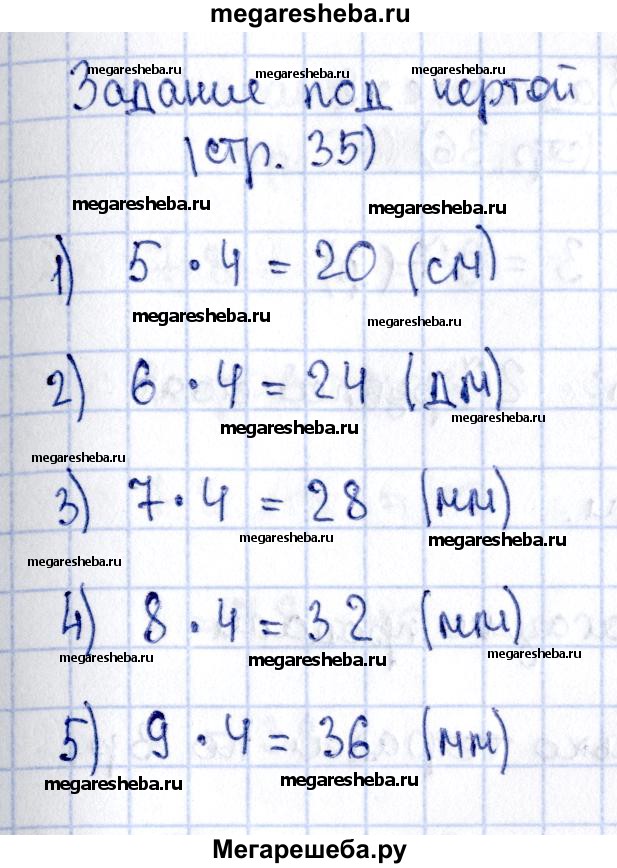 megaresheba.ru
megaresheba.ru megaresheba.ru megaresheba.ru
Задание под чертой
(стр. 35)
megaresheba.ru megaresheba.ru
1) 5 · 4 = 20 (см)
megaresheba.ru megaresheba.ru
2) 6 · 4 = 24 (дм)
megaresheba.ru megaresheba.ru
megaresheba.ru
3) 7 · 4 = 28 (мм)
megaresheba.ru megaresheba.ru
megaresheba.ru
4) 8 · 4 = 32 (мм)
megaresheba.ru megaresheba.ru megaresheba.ru
5) 9 · 4 = 36 (мм)
megaresheba.ru megaresheba.ru
Мегарешеба.ру